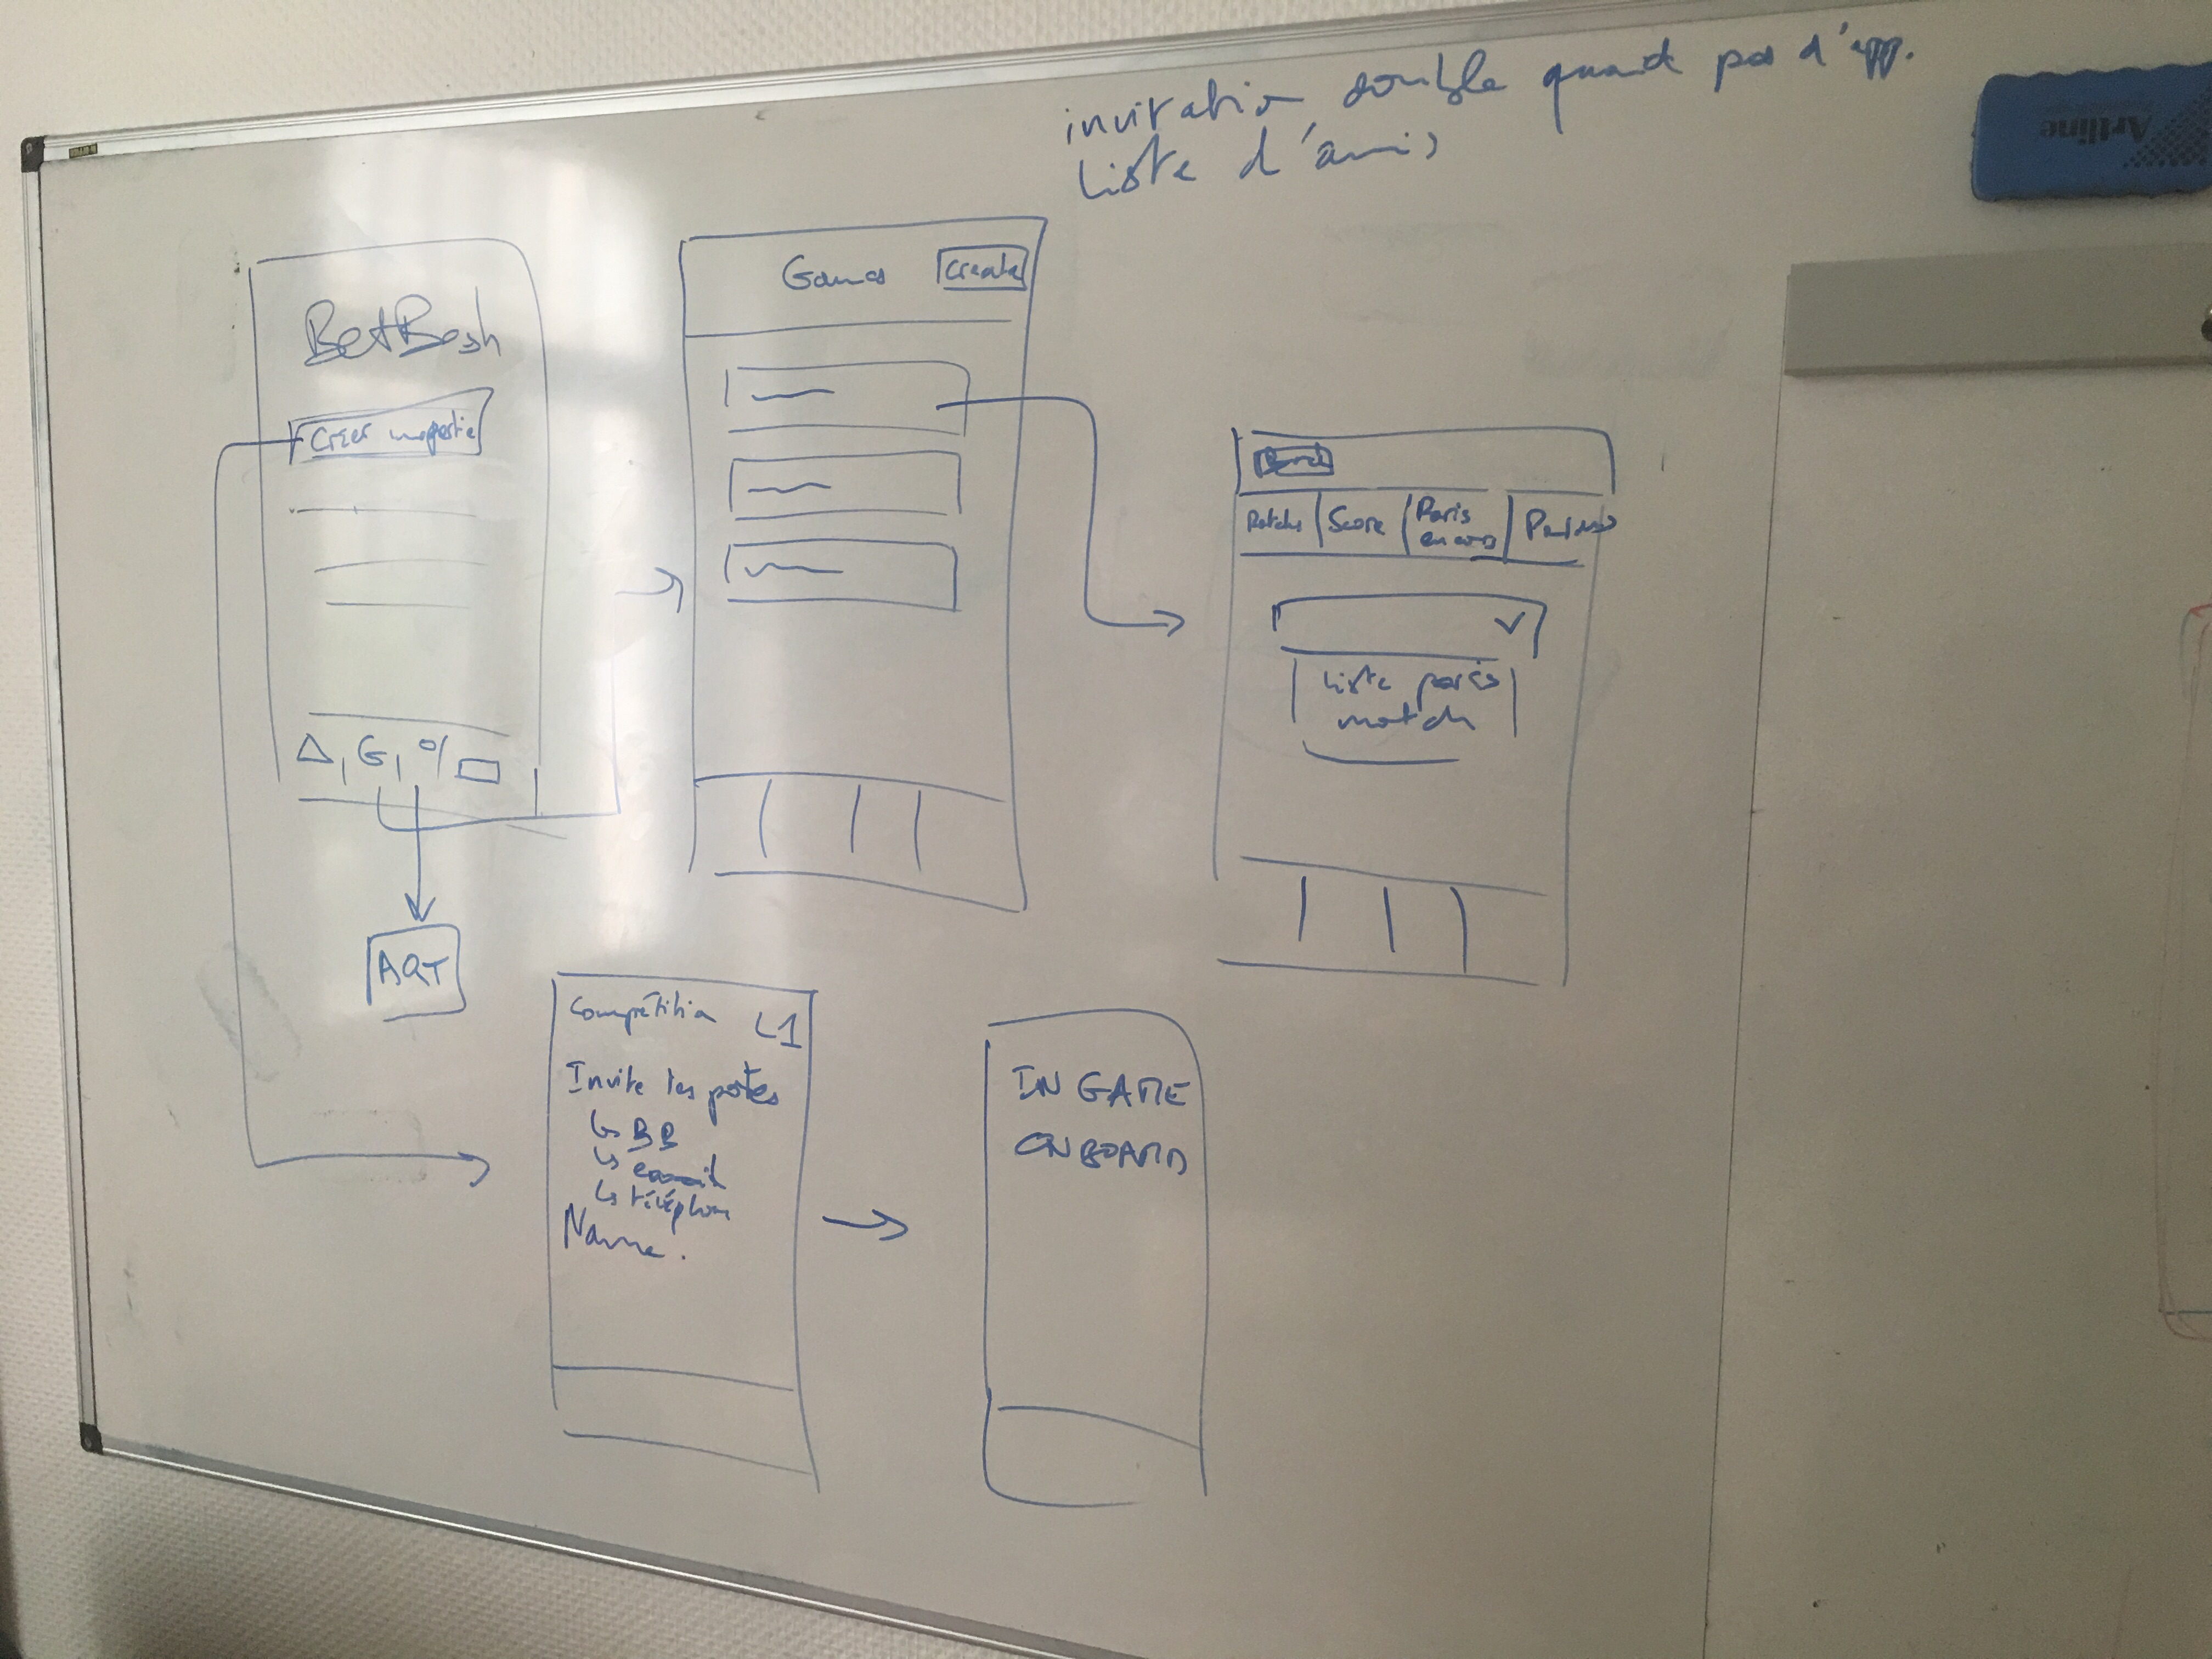 invitation double quand pas d'app.
Liste d'amis
Artline
BetBash
Créer une partie
G
%
AQT
Games
Create
Score
Paris
en cours
Liste paris
match
Compétition L1
Invite tes potes
↳ BB
↳ email
↳ téléphone
Name.
IN GAME
ONBOARD